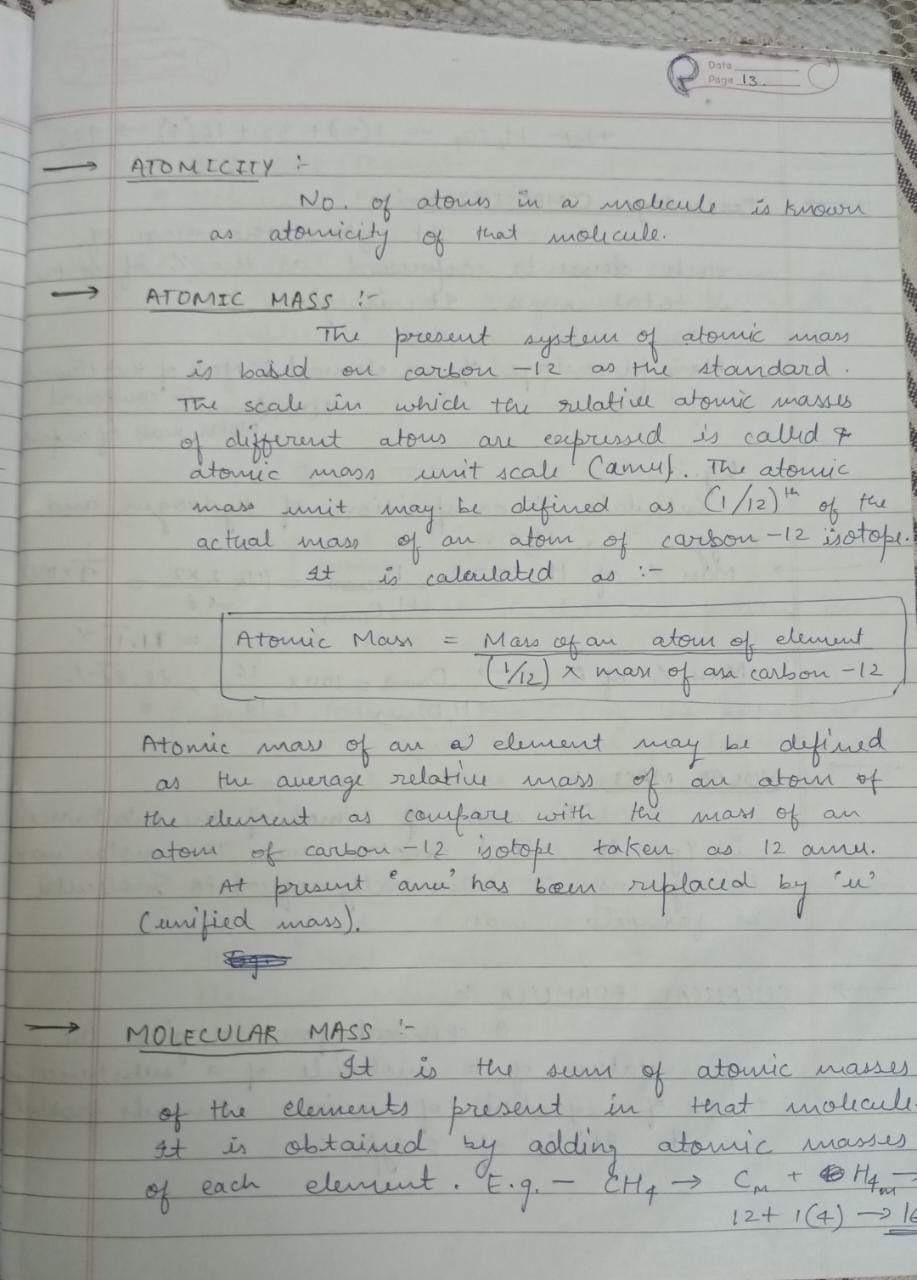 Date
Page 13
→ ATOMICITY :-
No. of atoms in a molecule is known
as atomicity of that molecule.
→ ATOMIC MASS :-
The present system of atomic mass
is based on carbon -12 as the standard.
The scale in which the relative atomic masses
of different atoms are expressed is called
atomic mass unit scale (amu). The atomic
mass unit may be defined as (1/12)th of the
actual mass of an atom of carbon -12 isotope.
It is calculated as :-
Atomic Mass = Mass of an atom of element
(1/12) × mass of an carbon -12
Atomic mass of an element may be defined
as the average relative mass of an atom of
the element as compare with the mass of an
atom of carbon -12 isotope taken as 12 amu.
At present 'amu' has been replaced by 'u'
(unified mass).
→ MOLECULAR MASS :-
It is the sum of atomic masses
of the elements present in that molecule.
It is obtained by adding atomic masses
of each element. E.g. - CH4 → CM + H4m →
12+ 1(4) → 16